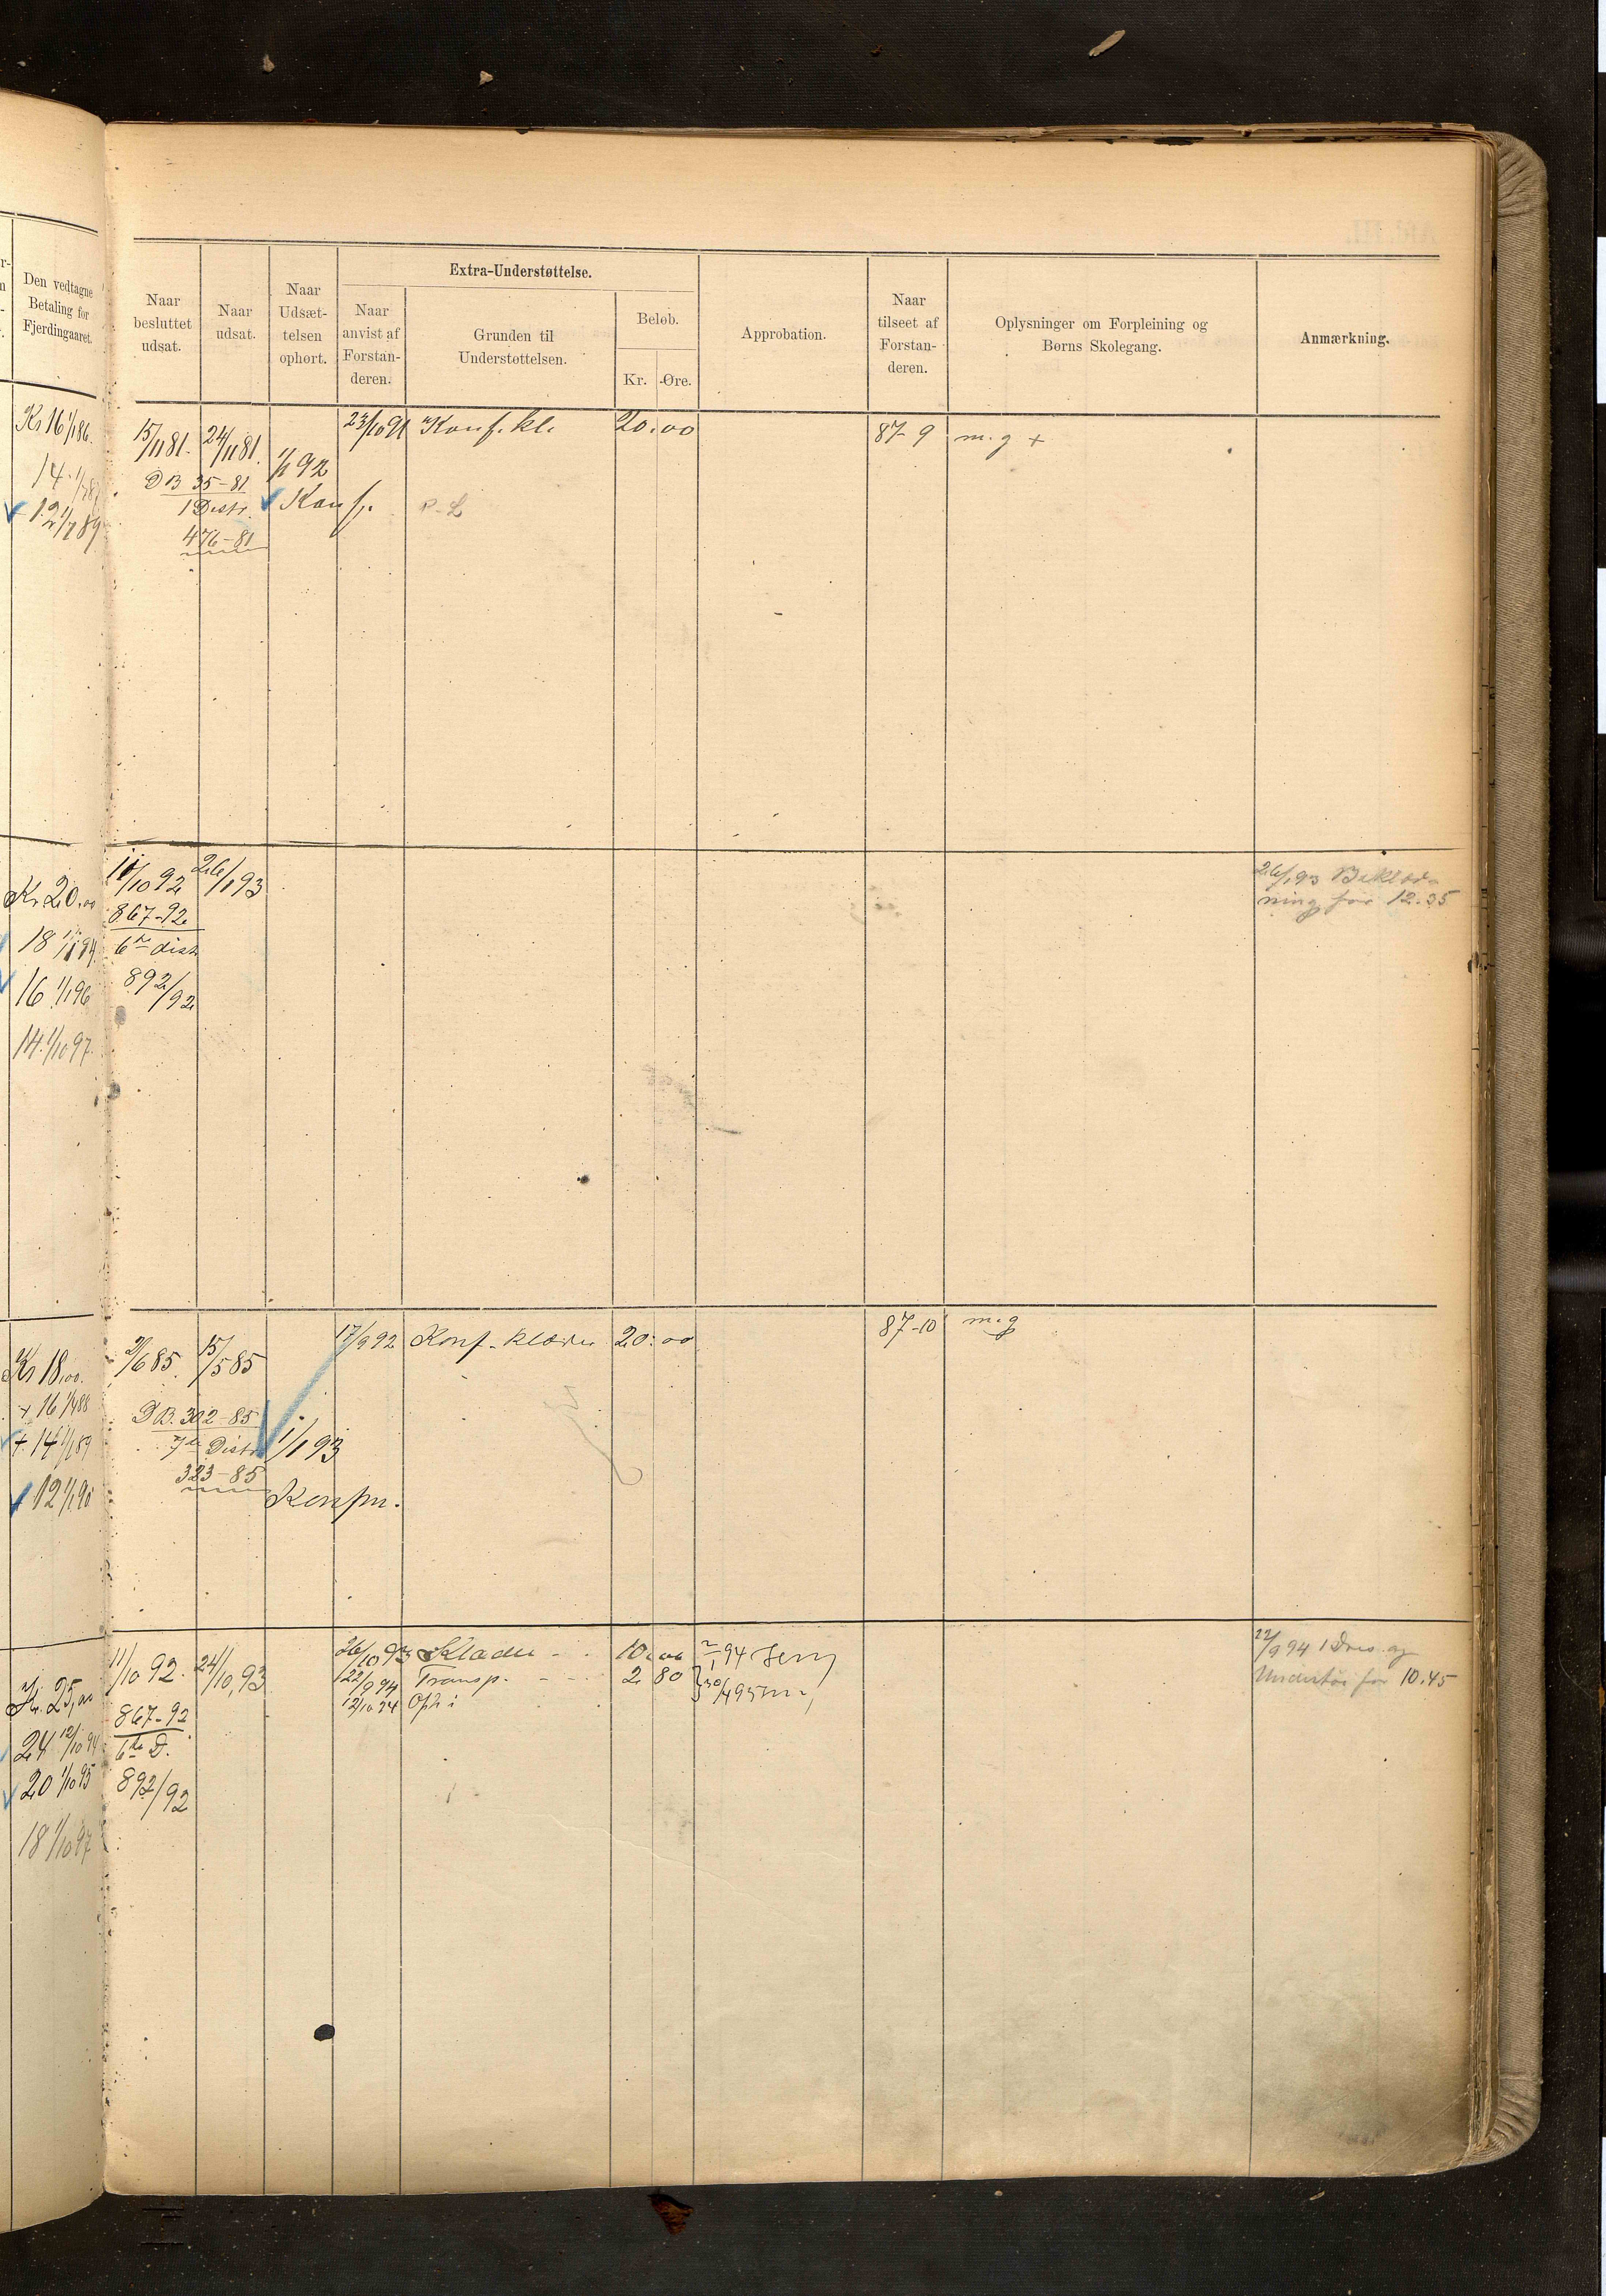 Den vedtagne
Betaling for
Fjerdingaaret.
Naar
besluttet
udsat.
Naar
udsat.
Naar
Udsæt-
telsen
ophørt.
Extra-Understøttelse.
Naar
anvist af
Forstan-
deren.
Grunden til
Understøttelsen.
Beløb.
Kr. Øre.
Approbation.
Naar
tilseet af
Forstan-
deren.
Oplysninger om Forpleining og
Børns Skolegang.
Anmærkning.
Kr 16 1/1 86.
14. 1/1 87
12 1/1 89
15/11 81. 24/11 81.
DB 35-81
1 Distr.
476-81
1/1 92
Konf.
23/10 91 Konf. kl. 20.00
87-9 m.g +
Kr 20.00
18 1/1 94
16 1/1 96
14. 1/10 97.
11/10 92 26/1 93
867-92
6te distr
892/92
26/1 93 Beklæd-
ning for 12.35
Kr 18,00.
+ 16 1/1 88
+ 14 1/1 89
12 1/1 90
2/6 85. 15/5 85
DB. 302-85
7de Distr
323-85
1/1 93
Konfm.
17/9 92 Konf-klæder 20.00
87-10 m.g
Kr. 25,00
24 12/10 94
20 1/10 95
18 1/10 97
11/10 92. 24/10, 93
867-92
6te D.
892/92
26/10 93 Klæder - - 10.00
22/9 94 Transp. - - - 2 80
12/10 94
22/9 94 1 Dres og
Undertøi for 10.45